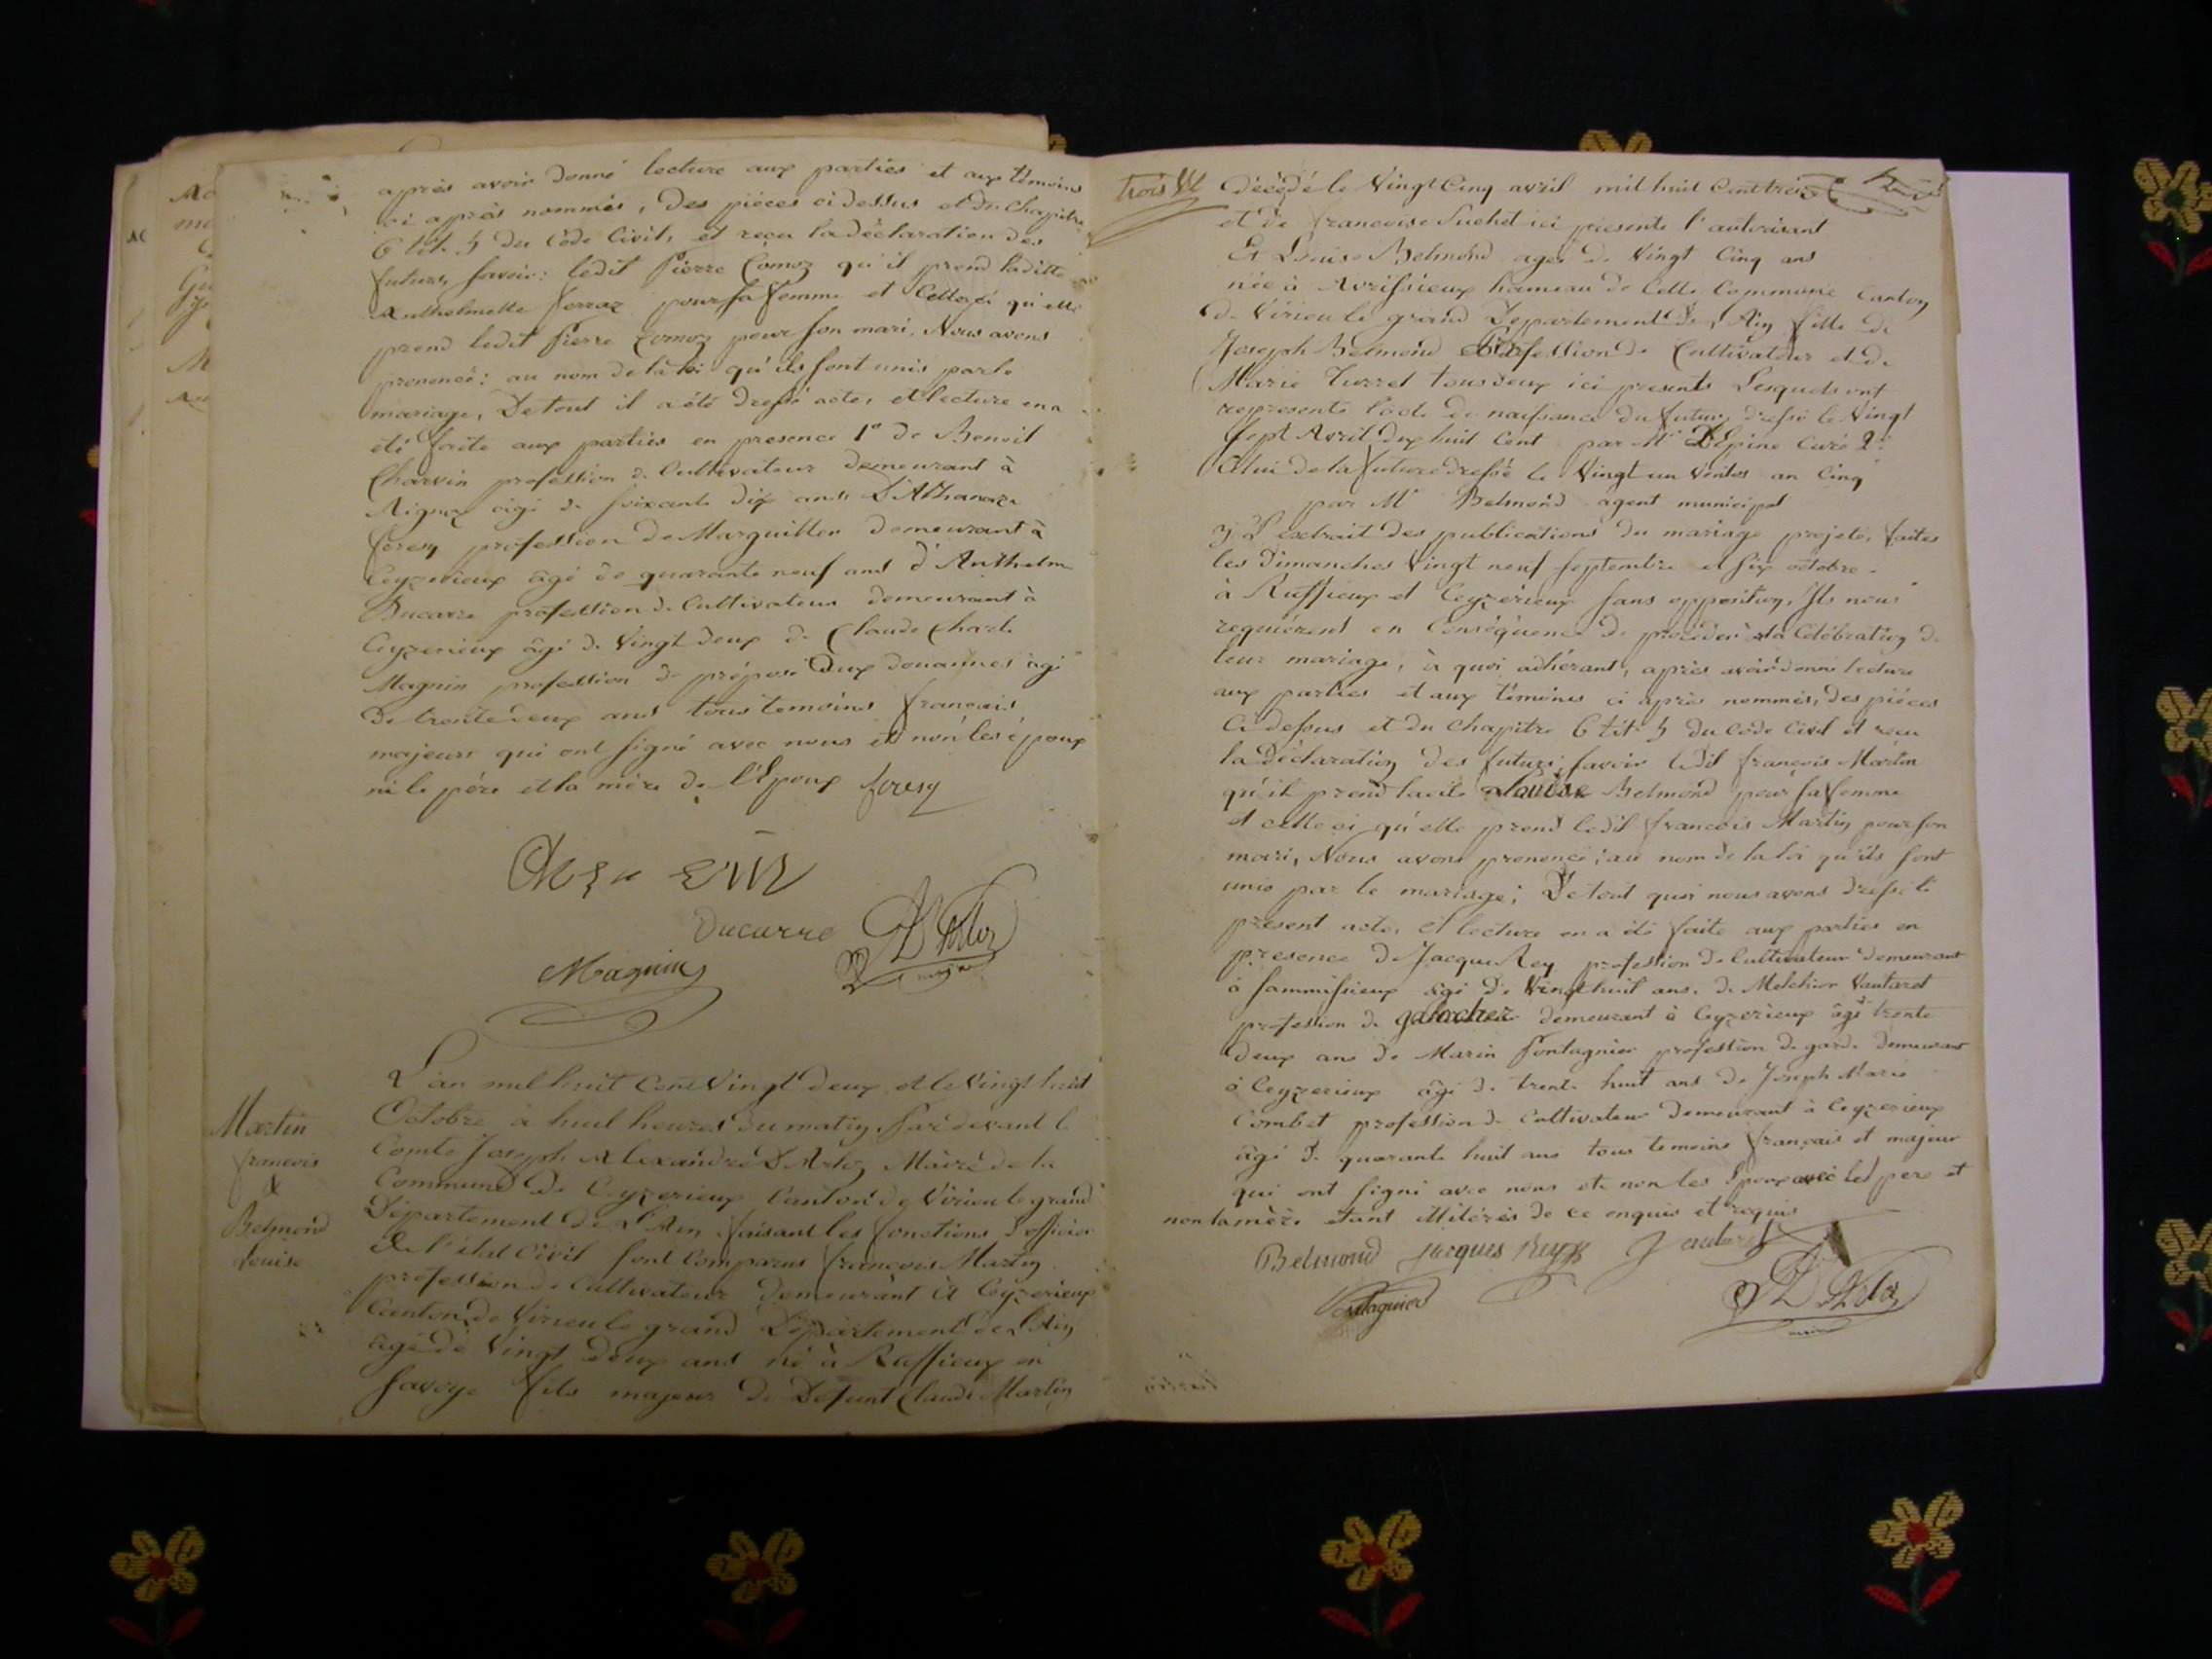 après avoir donné lecture aux parties et aux témoins
ci après nommés, des pièces ci dessus et du chapitre
6 tit. 5 du Code Civil, et reçu la déclaration des
futurs, savoir: ledit Pierre Comoz qu'il prend laditte
Anthelmette Ferraz pour sa femme et celle ci qu'elle
prend ledit Pierre Comoz pour son mari. Nous avons
prononcé: au nom de la loi qu'ils sont unis par le
mariage, De tout il a été dressé acte, et lecture en a
été faite aux parties en presence 1º de Benoit
Charvin profession de Cultivateur demeurant à
âgé de soixante dix ans D'Athanaze
foresy profession de Marguillier demeurant à
Ceyzerieux âgé de quarante neuf ans d'Anthelme
Ducarre profession de Cultivateur demeurant à
Ceyzerieux âgé de Vingt deux de Claude Charle
Magnin profession de préposé aux douannes âgé
De trente deux ans tous temoins français
majeurs qui ont signé avec nous et non les époux
ni le père et la mère de l'Epoux foresy
Ducarre
Magnin
L'an mil huit Cent Vingt deux et le Vingt huit
Octobre à huit heures du matin, Par devant le
Martin
Comte Joseph Alexandre D'Arloz Maire de la
françois
&
Commune de Ceyzerieux Canton de Virieu le grand
Belmond
Département de L'Ain faisant les fonctions d'officier
Louise
de l'état Civil sont Comparus françois Martin
profession de Cultivateur demeurant à Ceyzerieux
Canton de Virieu le grand Département de L'Ain
âgé de Vingt deux ans né à Ruffieux en
Savoye fils majeur de Defunt Claude Martin
trois
Décédé le Vingt Cinq avril mil huit Cent treize
et de francoise Suchet ici presente l'autorisant
Et Louise Belmond agée de Vingt Cinq ans
née à Avrissieux hameau de Cette Commune Canton
de Virieu le grand Departement de l'Ain fille de
Joseph Belmond profession de Cultivateur et de
Marie Turrel tous deux ici presents Lesquels ont
representé l'acte de naissance du futur dressé le Vingt
sept Avril dix huit Cent par Mr D'Epine Curé 2º
Celui de la future dressé le Vingt un Ventos an Cinq
par Mr Belmond agent municipal
3º L'extrait des publications du mariage projeté, faites
les Dimanches Vingt neuf septembre et six octobre
à Ruffieux et Ceyzerieux sans opposition, Ils nous
requièrent en Conséquence de procéder à la Célébration de
leur mariage, à quoi adhérant, après avoir donné lecture
aux parties et aux témoins ci après nommés, des pièces
Ci dessus et du Chapitre 6 tit. 5 du Code Civil et recu
la Déclaration des futurs, savoir ledit françois Martin
qu'il prend ladite Louise Belmond pour sa femme
et celle ci qu'elle prend ledit françois Martin pour son
mari, Nous avons prononcé; au nom de la loi qu'ils sont
unis par le mariage; De tout quoi nous avons dressé le
présent acte, et lecture en a été faite aux parties en
presence de Jacque Rey profession de Cultivateur demeurant
à Sammissieux âgé de Vingt huit ans. de Melchior Vautaret
profession de demeurant à Ceyzerieux âgé trente
deux ans de Marin Pontagnier profession de garde demeurant
à Ceyzerieux âgé de trente huit ans de Joseph Marie
Combet profession de Cultivateur demeurant à Ceyzerieux
âgé de quarante huit ans tous temoins français et majeur
qui ont signé avec nous et non les Epoux avec le pere et
non la mère étant illitérés de ce enquis et requis
Belmond Jacques Rey
Pontagnier